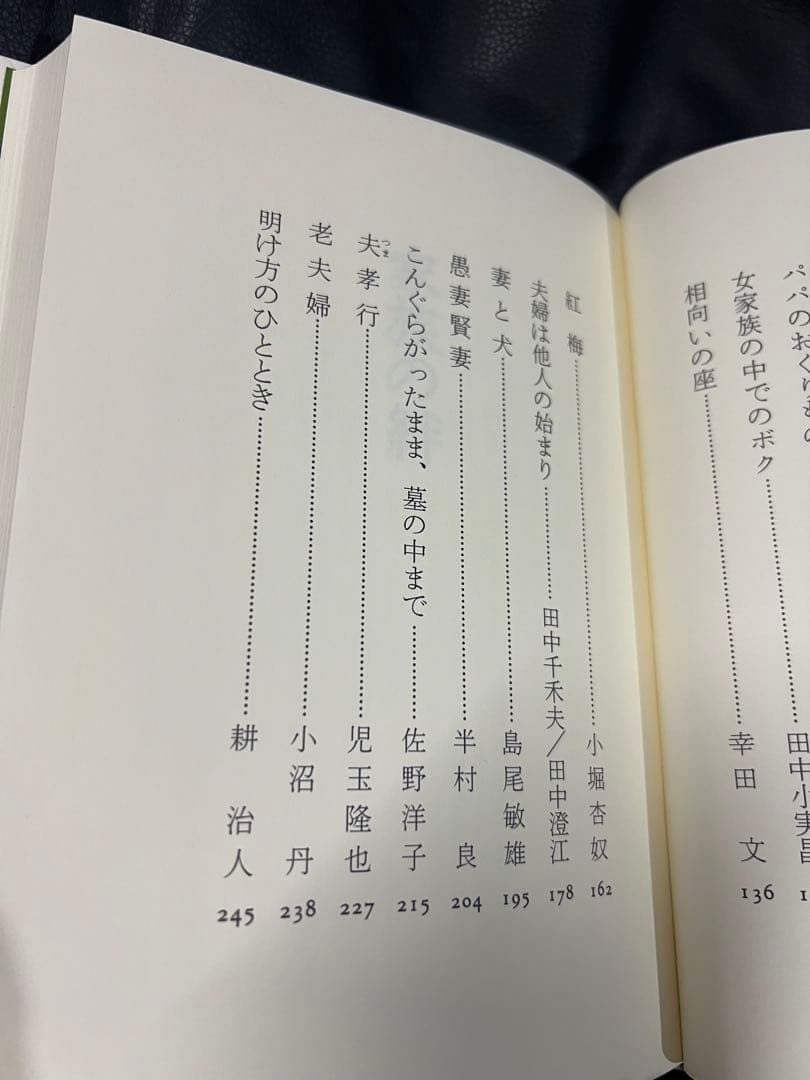 パパのおくりもの
女家族の中でのボク……田中小実昌 1
相向いの座……幸田 文 136
紅梅……小堀杏奴 162
夫婦は他人の始まり……田中千禾夫/田中澄江 178
妻と犬……島尾敏雄 195
愚妻賢妻……半村 良 204
こんぐらがったまま、墓の中まで……佐野洋子 215
つま
夫孝行……児玉隆也 227
老夫婦……小沼 丹 238
明け方のひととき……耕 治人 245